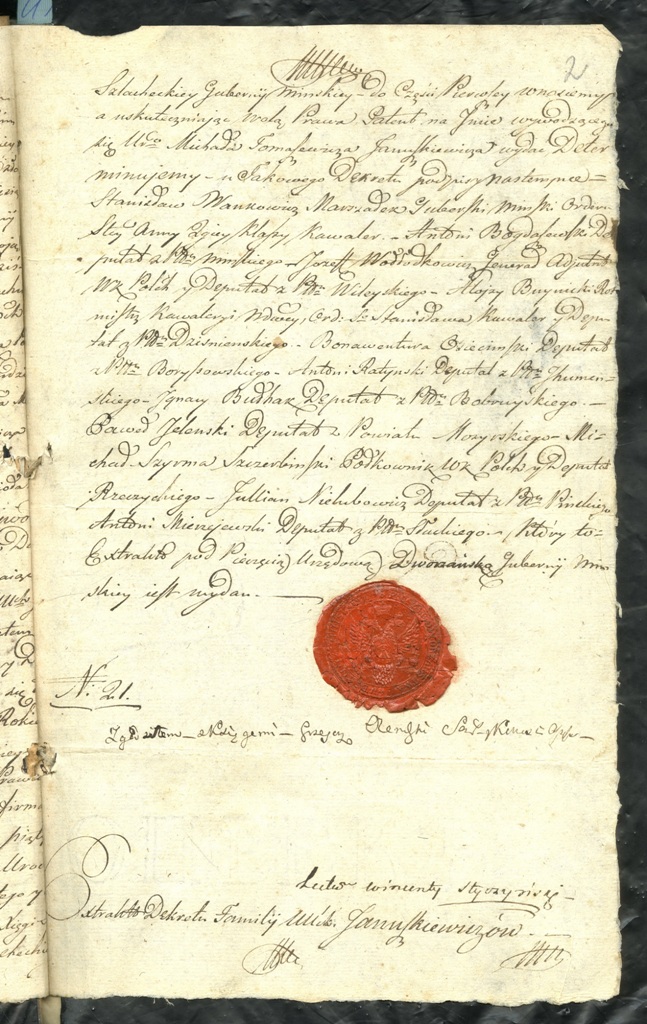 2
Szlacheckiey Gubernij Minskiey do Części Pierwszey wnosiemy
a uskuteczniaiąc wolą Prawa Patent na Jmie wywodzącego
się Ur° Michała Tomaszewicza Januszkiewicza wydać Deter
minujemy - u Takowego Dekretu podpisy następne -
Stanisław Wankowicz Marszałek Guberski, Minski Orderu
Stey Anny 2giey klassy Kawaler. - Antoni Bogdaszewski De
putat z Pttu Minskiego - Jozeff Wołodkowicz Jenerał Adjutat
WK Polch y Deputat z Pttu Wileyskiego - Aloizy Buynicki Rot
mistrz Kawaleryi Ndowey, Ord: S° Stanisława Kawaler y Depu-
tat z Pttu Dzisnienskiego - Bonawentura Deputat
z Pttu Borysowskiego - Antoni Ratynski Deputat z Pttu Jhumen-
skiego - Jgnacy Bułhak Deputat z Pttu Bobruyskiego. -
Paweł Jelenski Deputat z Powiatu Mozyrskiego - Mi-
chał Szyrma Szczerbinski Półkownik WK Polch y Deputat
Rzeczyckiego - Jullian Nielubowicz Deputat z Pttu Pinskiego
Antoni Mierzejewski Deputat z Pttu Słuckiego - Który to -
Extrakt pod Pieczęcią Urzędową Dworiańską Gubernij Min
skiey iest wydan. -
N: 21.
Zgodziłem z Xięgami - Grzegorz
Lectum Wincenty Styczyński -
Extrakt Dekretu Familij Januszkiewiczów. -